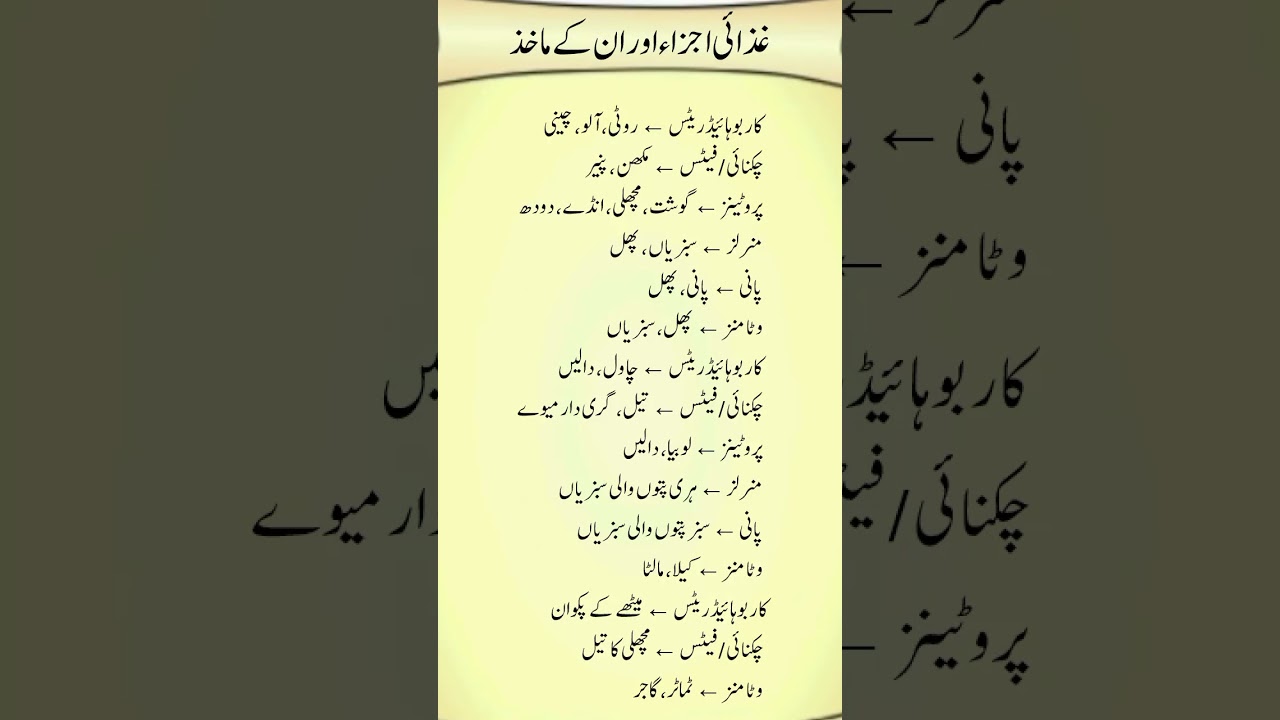 غذائی اجزاء اور ان کے ماخذ
کاربوہائیڈریٹس ← روٹی، آلو، چینی
چکنائی/فیٹس ← مکھن، پنیر
پروٹینز ← گوشت، مچھلی، انڈے، دودھ
منرلز ← سبزیاں، پھل
پانی ← پانی، پھل
وٹامنز ← پھل، سبزیاں
کاربوہائیڈریٹس ← چاول، دالیں
چکنائی/فیٹس ← تیل، گری دار میوے
پروٹینز ← لوبیا، دالیں
منرلز ← ہری پتوں والی سبزیاں
پانی ← سبز پتوں والی سبزیاں
وٹامنز ← کیلا، مالٹا
کاربوہائیڈریٹس ← میٹھے کے پکوان
چکنائی/فیٹس ← مچھلی کا تیل
وٹامنز ← ٹماٹر، گاجر